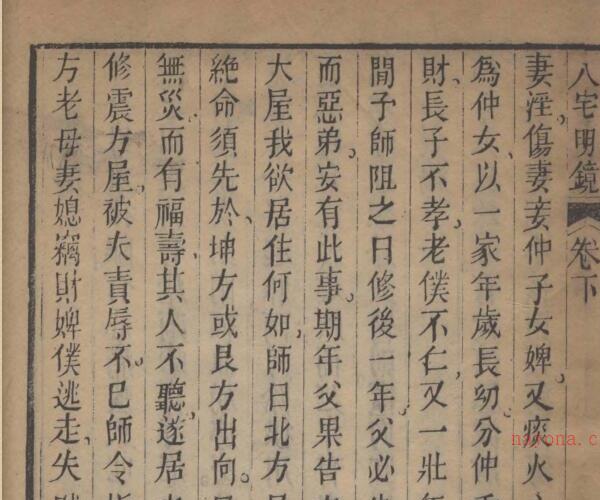 八宅明鏡 卷下
妻淫傷妻妾仲子女婢又痰火
為仲女以一家年歲長幼分仲
財長子不孝老僕不仁又一壯年
間予師阻之曰修後一年父必
而惡弟安有此事期年父果告
大屋我欲居住何如師曰北方
絶命須先於坤方或艮方出向
無災而有福壽其人不聽遂居
修震方屋被夫責辱不巳師令
方老母妻媳竊財婢僕逃走失